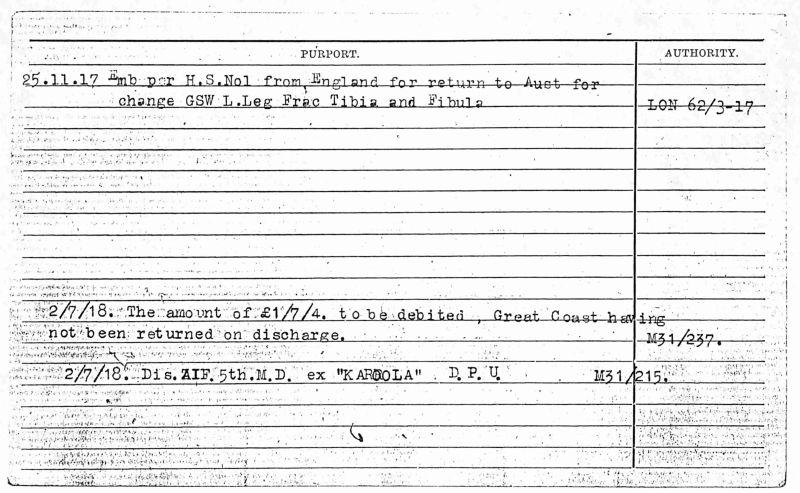 PURPORT. AUTHORITY.
25.11.17 Emb per H.S.No1 from England for return to Aust for
change GSW L.Leg Frac Tibia and Fibula LON 62/3-17
2/7/18. The amount of £1/7/4. to be debited , Great Coast having
not been returned on discharge. M31/237.
2/7/18. Dis.AIF.5th.M.D. ex "KAROOLA" D.P.U. M31/215.